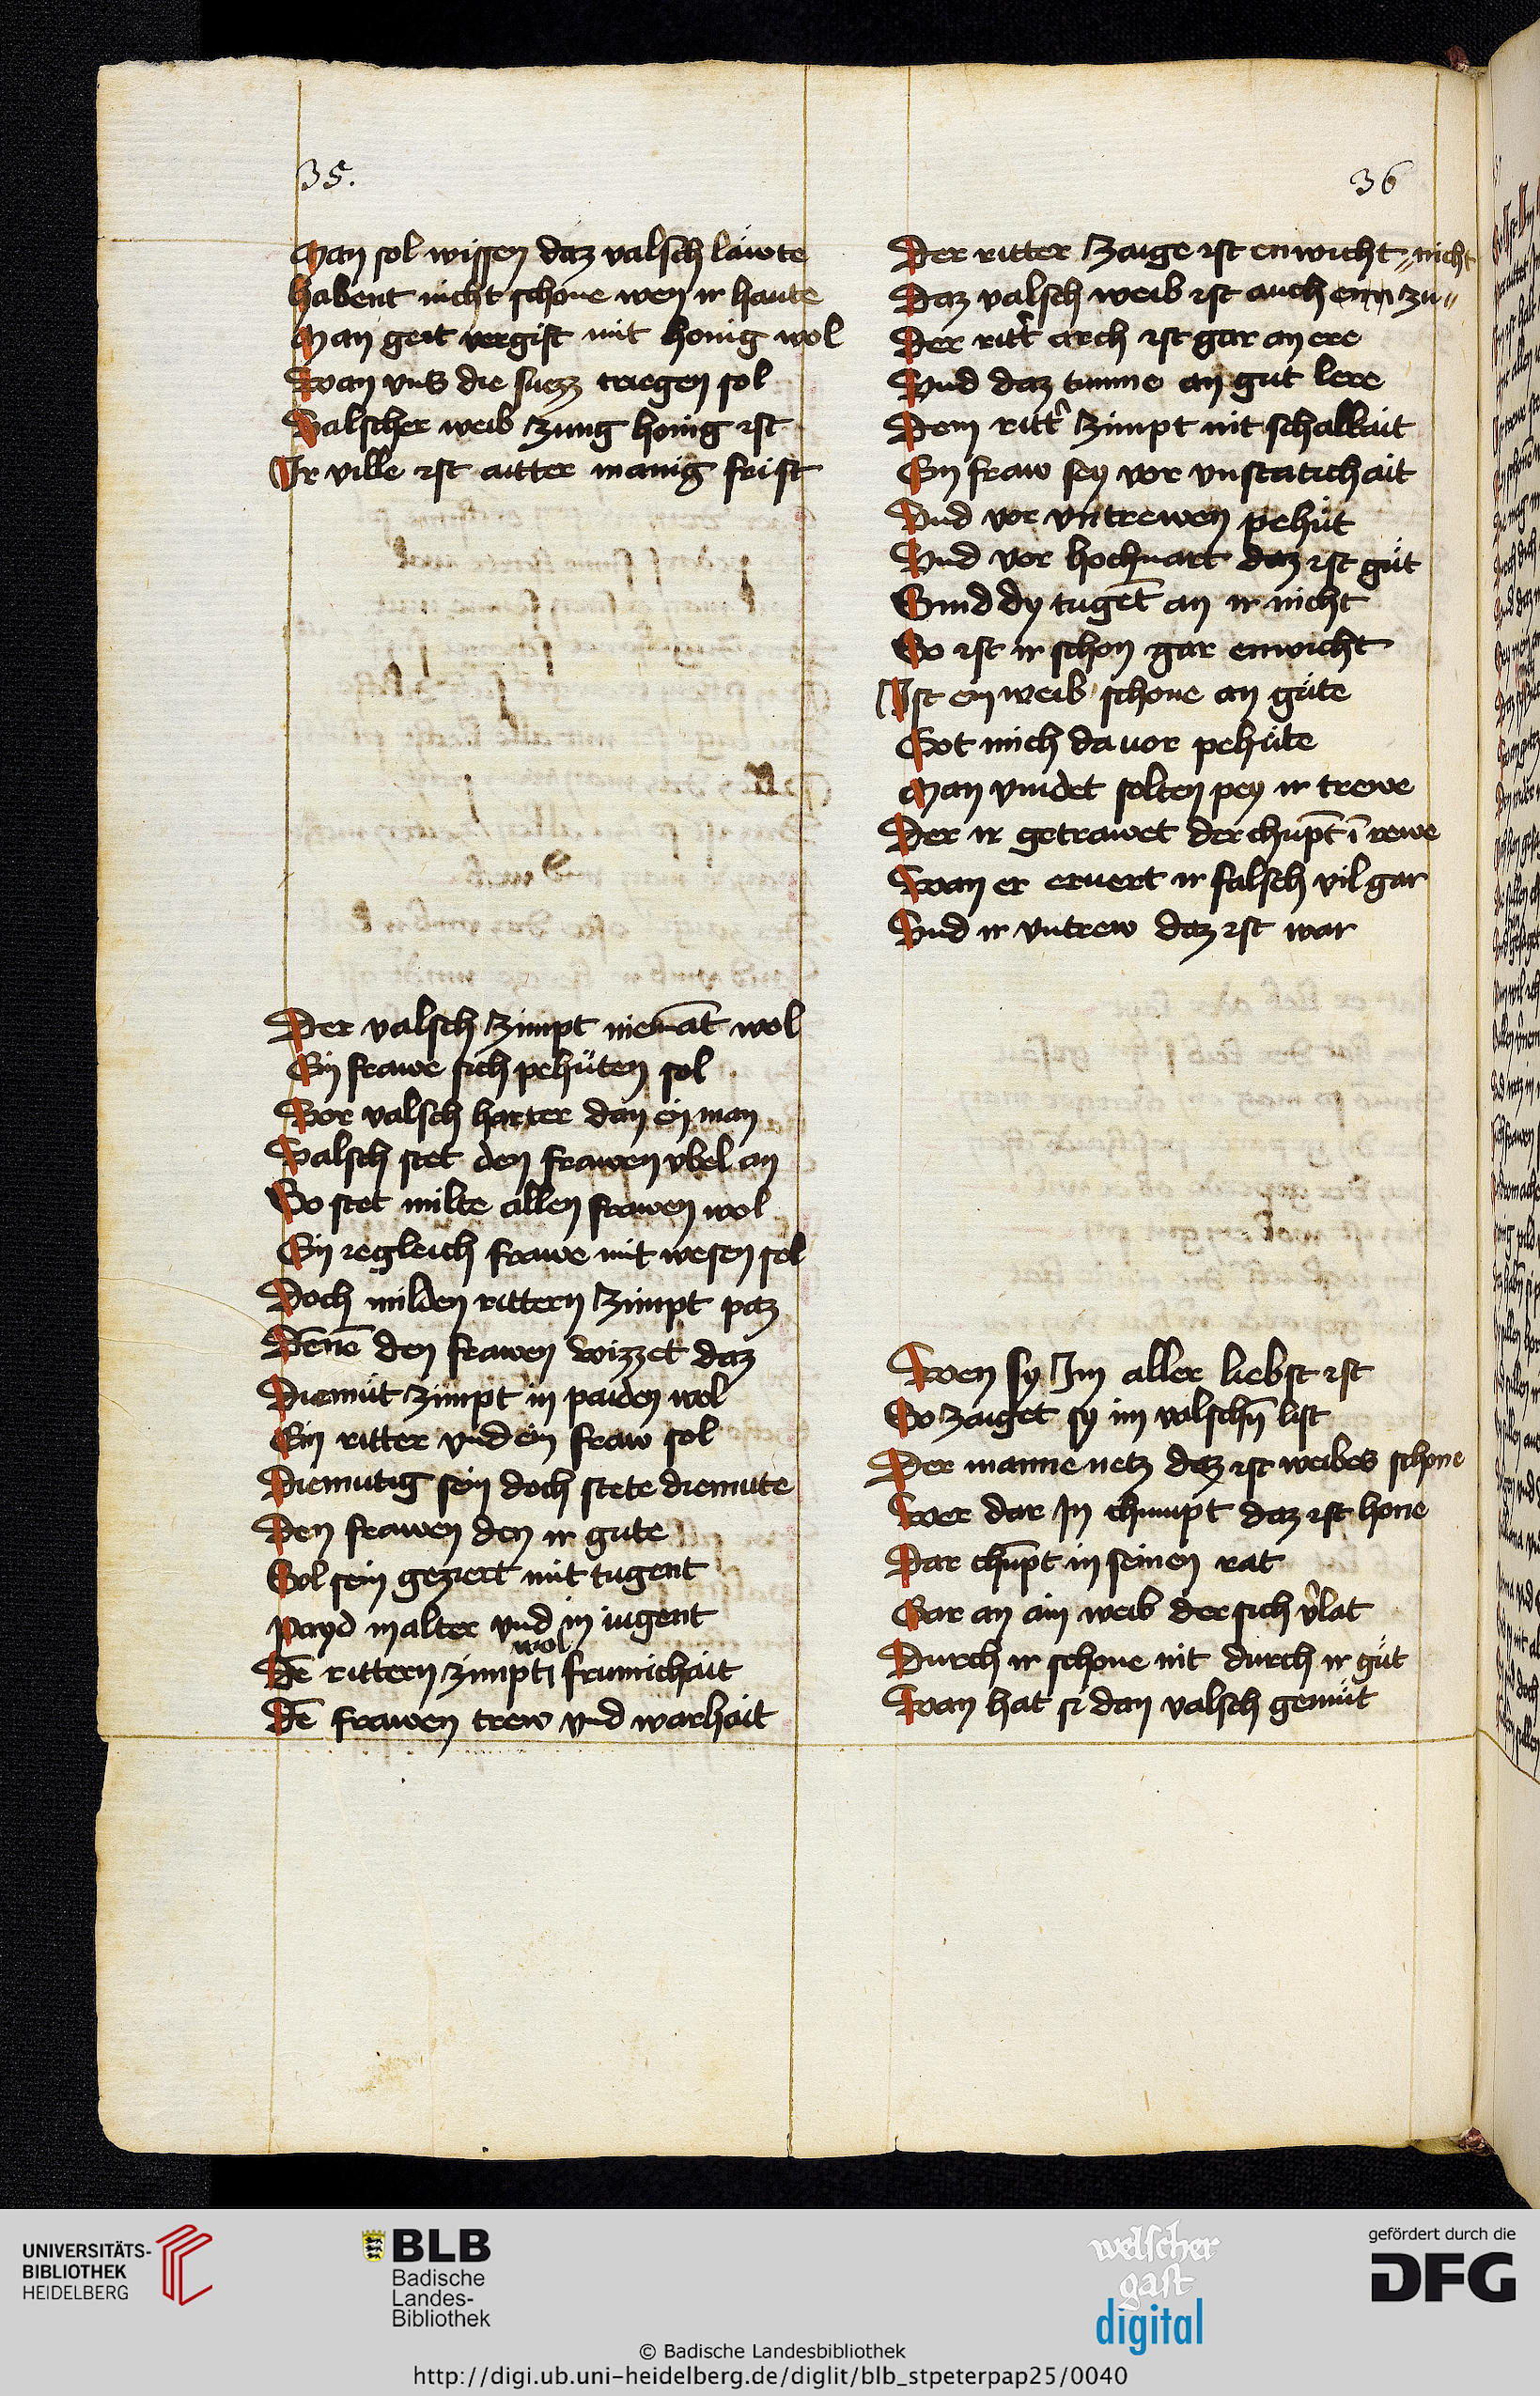 35.
Man sol wissen daz valsch läwte
habent nicht schone wen ir haute
Man geit vergift mit honig wol
Wan vns die suezz triegen sol
Valscher weib zung honig ist
Ir ville ist aitter manig frist
Der valsch zimpt niemāt wol
Ein frawe sich pehüten sol
Vor valsch harter dan ein man
Valsch stet den frawen vbel an
So stet milte allen frawen wol
Ein iegleich frawe mit wesen sol
Doch milden rittern zimpt paz
Denē den frawen wizzet daz
Diemüt zimpt in paiden wol
Ein ritter vnd ein fraw sol
Diemutig sein doch stete diemute
Den frawen den ir gute
Sol sein geziert mit tugent
Payd in alter vnd in iugent
wol
Dē rittern zimpt frumichait
Dē frawen trew vnd warhait
36
Der ritter zaige ist enwicht nicht
Daz valsch weib ist auch enn zu
Der ritt' arch ist gar an ere
Vnd daz tumme an gut lere
Dem ritt' zimpt nit schalkait
Ein fraw sey vor vnstatichait
Vnd vor vntrewen pehüt
Vnd vor hochuart daz ist güt
Sind dy tugēt an ir nicht
So ist ir schon gar enwicht
Ist ein weib schone an güte
Got mich da uor pehüte
Man vindet selten pey ir trewe
Der ir getrawet der chupt ī rewe
Wan er eruert ir falsch vil gar
Vnd ir vntrew daz ist war
Wen sy Im aller liebst ist
So zaiget sy im valschn̄ list
Der manne netz daz ist weibes schone
Wer dar In chumpt daz ist hone
Dar chūpt in seinen rat
Gar an ain weib der sich v'lat
Durch ir schone nit durch ir güt
Wan hat si dan valsch gemüt
UNIVERSITÄTS-
BIBLIOTHEK
HEIDELBERG
BLB
Badische
Landes-
Bibliothek
welscher
gast
digital
gefördert durch die
DFG
© Badische Landesbibliothek
http://digi.ub.uni-heidelberg.de/diglit/blb_stpeterpap25/0040